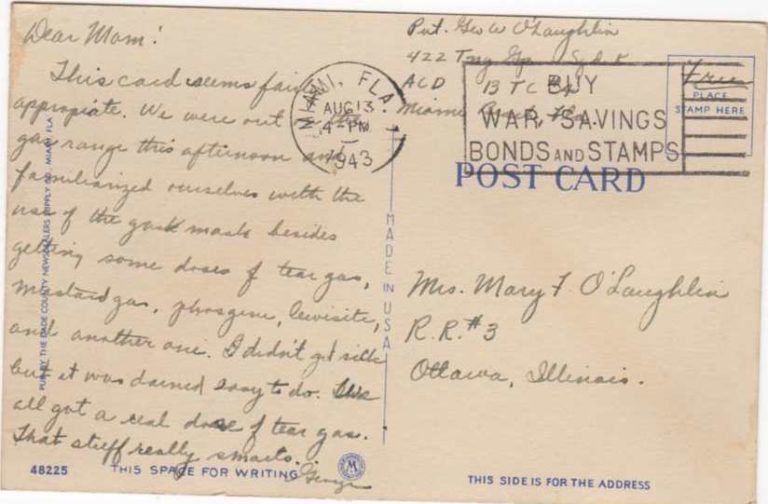 Dear Mom!
This card seems fairly
appropiate. We were out on the
gas range this afternoon and
familiarized ourselves with the
use of the gask mask besides
getting some doses of tear gas,
mustard gas, phosgene, lewisite,
and another one. I didn't get sick
but it was darned easy to do. We
all got a real dose of tear gas.
That stuff really smarts.
George
PUB. BY THE DADE COUNTY NEWSDEALERS SUPPLY CO. MIAMI, FLA
48225
THIS SPACE FOR WRITING
MADE IN USA
Pvt. Geo W O'Laughlin
422 Tng Gp Sqd
ACD BTC
Miami Beach, Fla.
MIAMI, FLA.
AUG 13
4-PM
1943
BUY
WAR SAVINGS
BONDS AND STAMPS
Free
PLACE
STAMP HERE
POST CARD
Mrs. Mary F. O'Laughlin
R.R. #3
Ottawa, Illinois.
THIS SIDE IS FOR THE ADDRESS